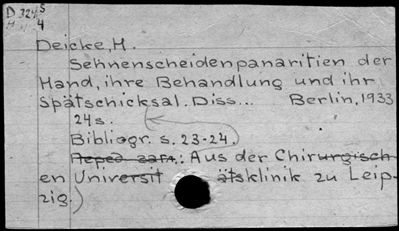 D 324 5
H 4
Deicke, H.
Sehnenscheidenpanaritien der
Hand, ihre Behandlung und ihr
Spätschicksal. Diss... Berlin, 1933
24s.
Bibliogr. s. 23-24.
Перед загл.: Aus der Chirurgisch-
en Universit ätsklinik zu Leip-
zig.)